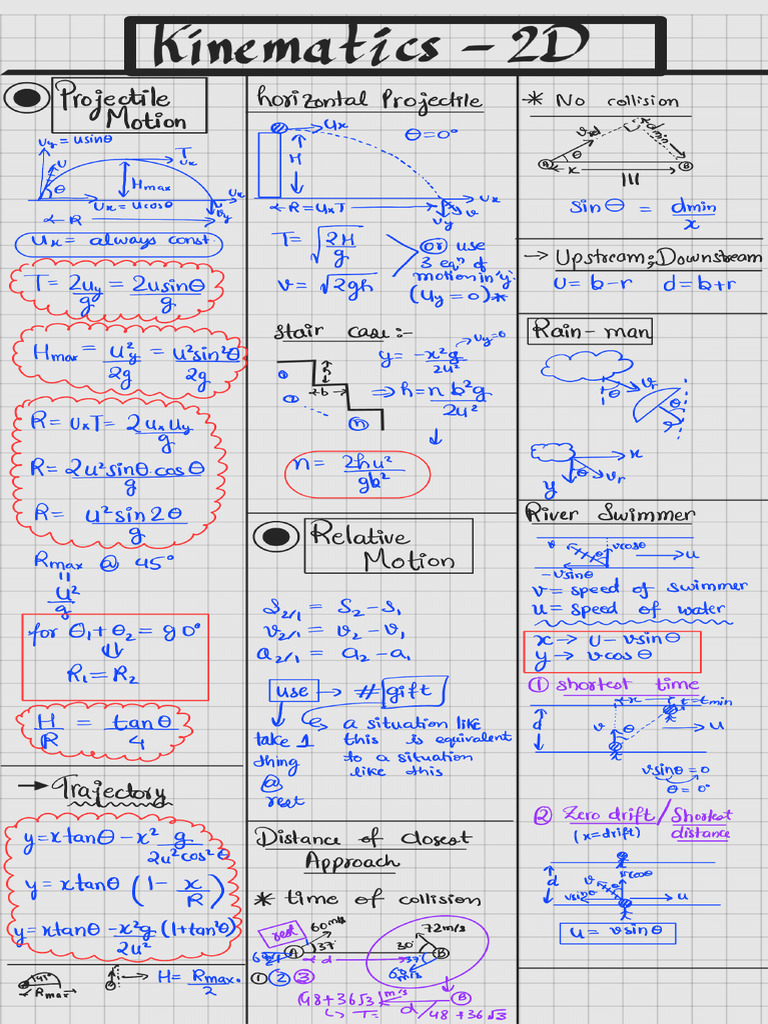 Kinematics - 2D
Projectile
Motion
uy = usinθ
u
θ
T
ux
Hmax
ux = ucosθ
ux
vy
R
ux = always const.
T = 2uy/g = 2usinθ/g
Hmax = uy²/2g = u²sin²θ/2g
R = uxT = 2uxuy/g
R = 2u²sinθ.cosθ/g
R = u²sin2θ/g
Rmax @ 45°
=
u²/g
for θ1+θ2 = 90°
⇕
R1 = R2
H/R = tanθ/4
→ Trajectory
y = xtanθ - x² g/2u²cos²θ
y = xtanθ (1 - x/R)
y = xtanθ - x²g/2u² (1+tan²θ)
Rmax
→ H = Rmax/2
horizontal Projectile
ux
θ = 0°
H
R = uxT
ux
vy
v
T = √2H/g
v = √2gh
or use
3 eqn of
motion in 'y'
(uy = 0)*
stair case:-
y = -x²g/2u²
uy=0
⇒ h = n b²g/2u²
h
b
n
n = 2hu²/gb²
Relative
Motion
S2/1 = S2 - S1
v2/1 = v2 - v1
a2/1 = a2 - a1
use → # gift
take 1
thing
@
rest
a situation like
this is equivalent
to a situation
like this
Distance of closest
Approach
* time of collision
rest
60m/s
72m/s
A
37°
30°
B
d
37°
1 2 3
(48+36√3) m/s
B
T = d/48+36√3
* No collision
θ
dmin
A
x
B
sinθ = dmin/x
→ Upstream; Downstream
u = b-r d = b+r
Rain-man
θ
vr
θ
x
θ
vr
y
River Swimmer
v
vcosθ
u
-vsinθ
v = speed of swimmer
u = speed of water
x → u - vsinθ
y → vcosθ
1 shortest time
x
t = tmin
d
v
θ
u
vsinθ = 0
θ = 0°
2 Zero drift/Shortest
distance
(x=drift)
d
vcosθ
vsinθ
u
u = vsinθ